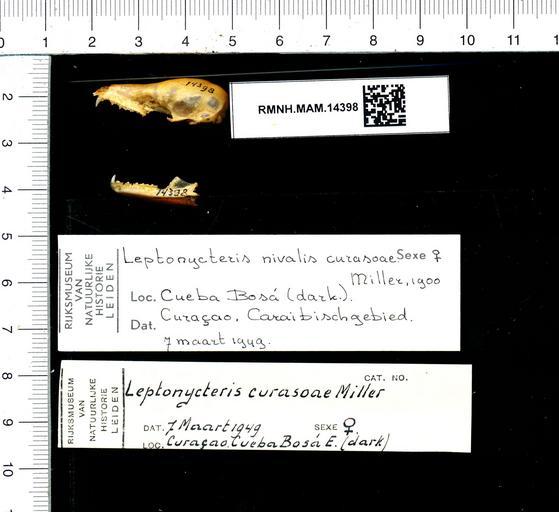 0 1 2 3 4 5 6 7 8 9 10 11
2
3
4
5
6
7
8
9
10
14398
RMNH.MAM.14398
14398
RIJKSMUSEUM
VAN
NATUURLIJKE
HISTORIE
LEIDEN
Leptonycteris nivalis curasoae Sexe ♀
Miller, 1900
Loc. Cueba Bosá (dark).
Curaçao, Caraibisch gebied.
Dat.
7 maart 1949.
RIJKSMUSEUM
VAN
NATUURLIJKE
HISTORIE
LEIDEN
CAT. NO.
Leptonycteris curasoae Miller
DAT. 7 Maart 1949 SEXE ♀
LOC. Curaçao, Cueba Bosá E. (dark)